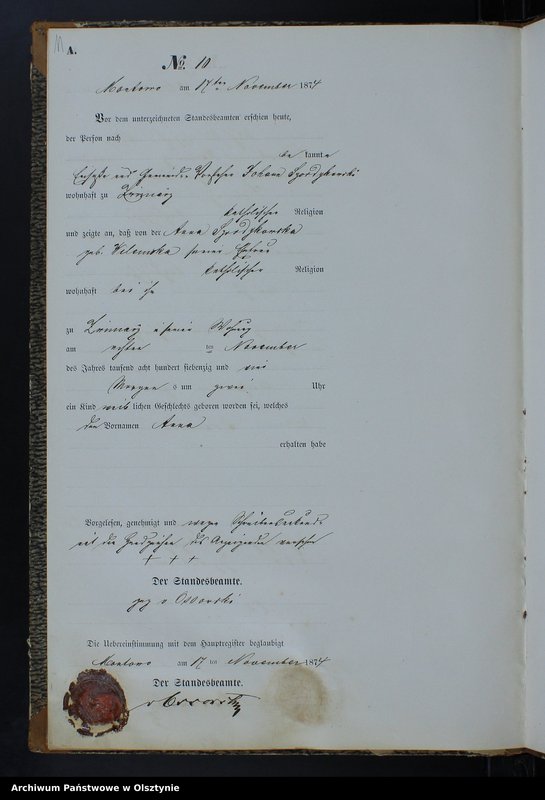 A.
No. 10
Montowo am 17ten November 1874
Vor dem unterzeichneten Standesbeamten erschien heute,
der Person nach
bekannte
und Gemeinde Vorsteher Johann
wohnhaft zu
katholischer Religion
und zeigte an, daß von der Anna
geb. seiner Ehefrau
katholischer Religion
wohnhaft bei ihm
zu in seiner Wohnung
am achten ten November
des Jahres tausend acht hundert siebenzig und vier
Morgens um zwei Uhr
ein Kind weiblichen Geschlechts geboren worden sei, welches
den Vornamen Anna
erhalten habe
Vorgelesen, genehmigt und wegen
mit den Handzeichen des Anzeigenden versehen
+ + +
Der Standesbeamte.
gez v Ossowski
Die Uebereinstimmung mit dem Hauptregister beglaubigt
Montowo am 17 ten November 1874
Der Standesbeamte.
v Ossowski
Archiwum Państwowe w Olsztynie